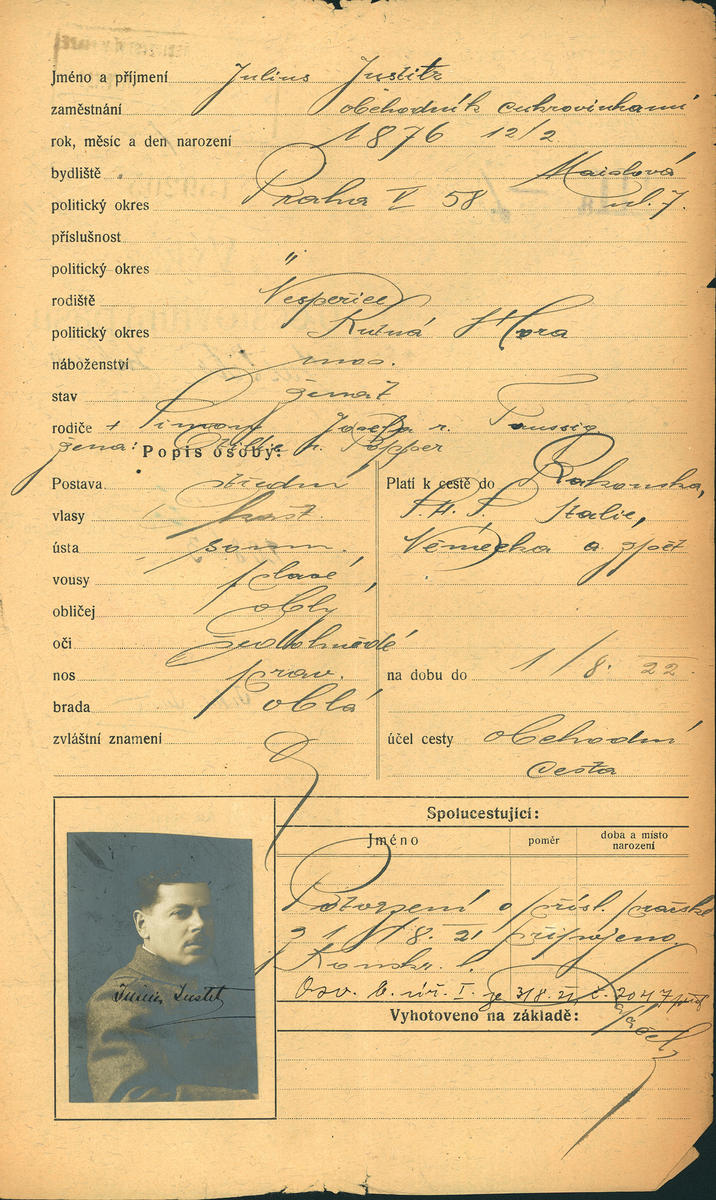 Jméno a příjmení Julius Justitz
zaměstnání obchodník cukrovinkami
rok, měsíc a den narození 1876 12/2
bydliště Maislová
politický okres Praha V 58 ul. 7.
příslušnost
politický okres "
rodiště
politický okres Kutná Hora
náboženství mos.
stav ženat
rodiče + Simon Josefa r. Taussig
žena: r. Popper
Popis osoby:
Postava střední
vlasy kašt.
ústa soum.
vousy plavé
obličej oblý
oči šedohnědé
nos prav.
brada oblá
zvláštní znamení
Platí k cestě do Rakouska,
Italie,
Německa a zpět
na dobu do 1/8. 22.
účel cesty obchodní
cesta
Spolucestující:
Jméno poměr doba a místo narození
Potvrzení o přísl. pražské
8. 21 připojeno.
3/8 21 č. 2047
Vyhotoveno na základě:
Julius Justitz